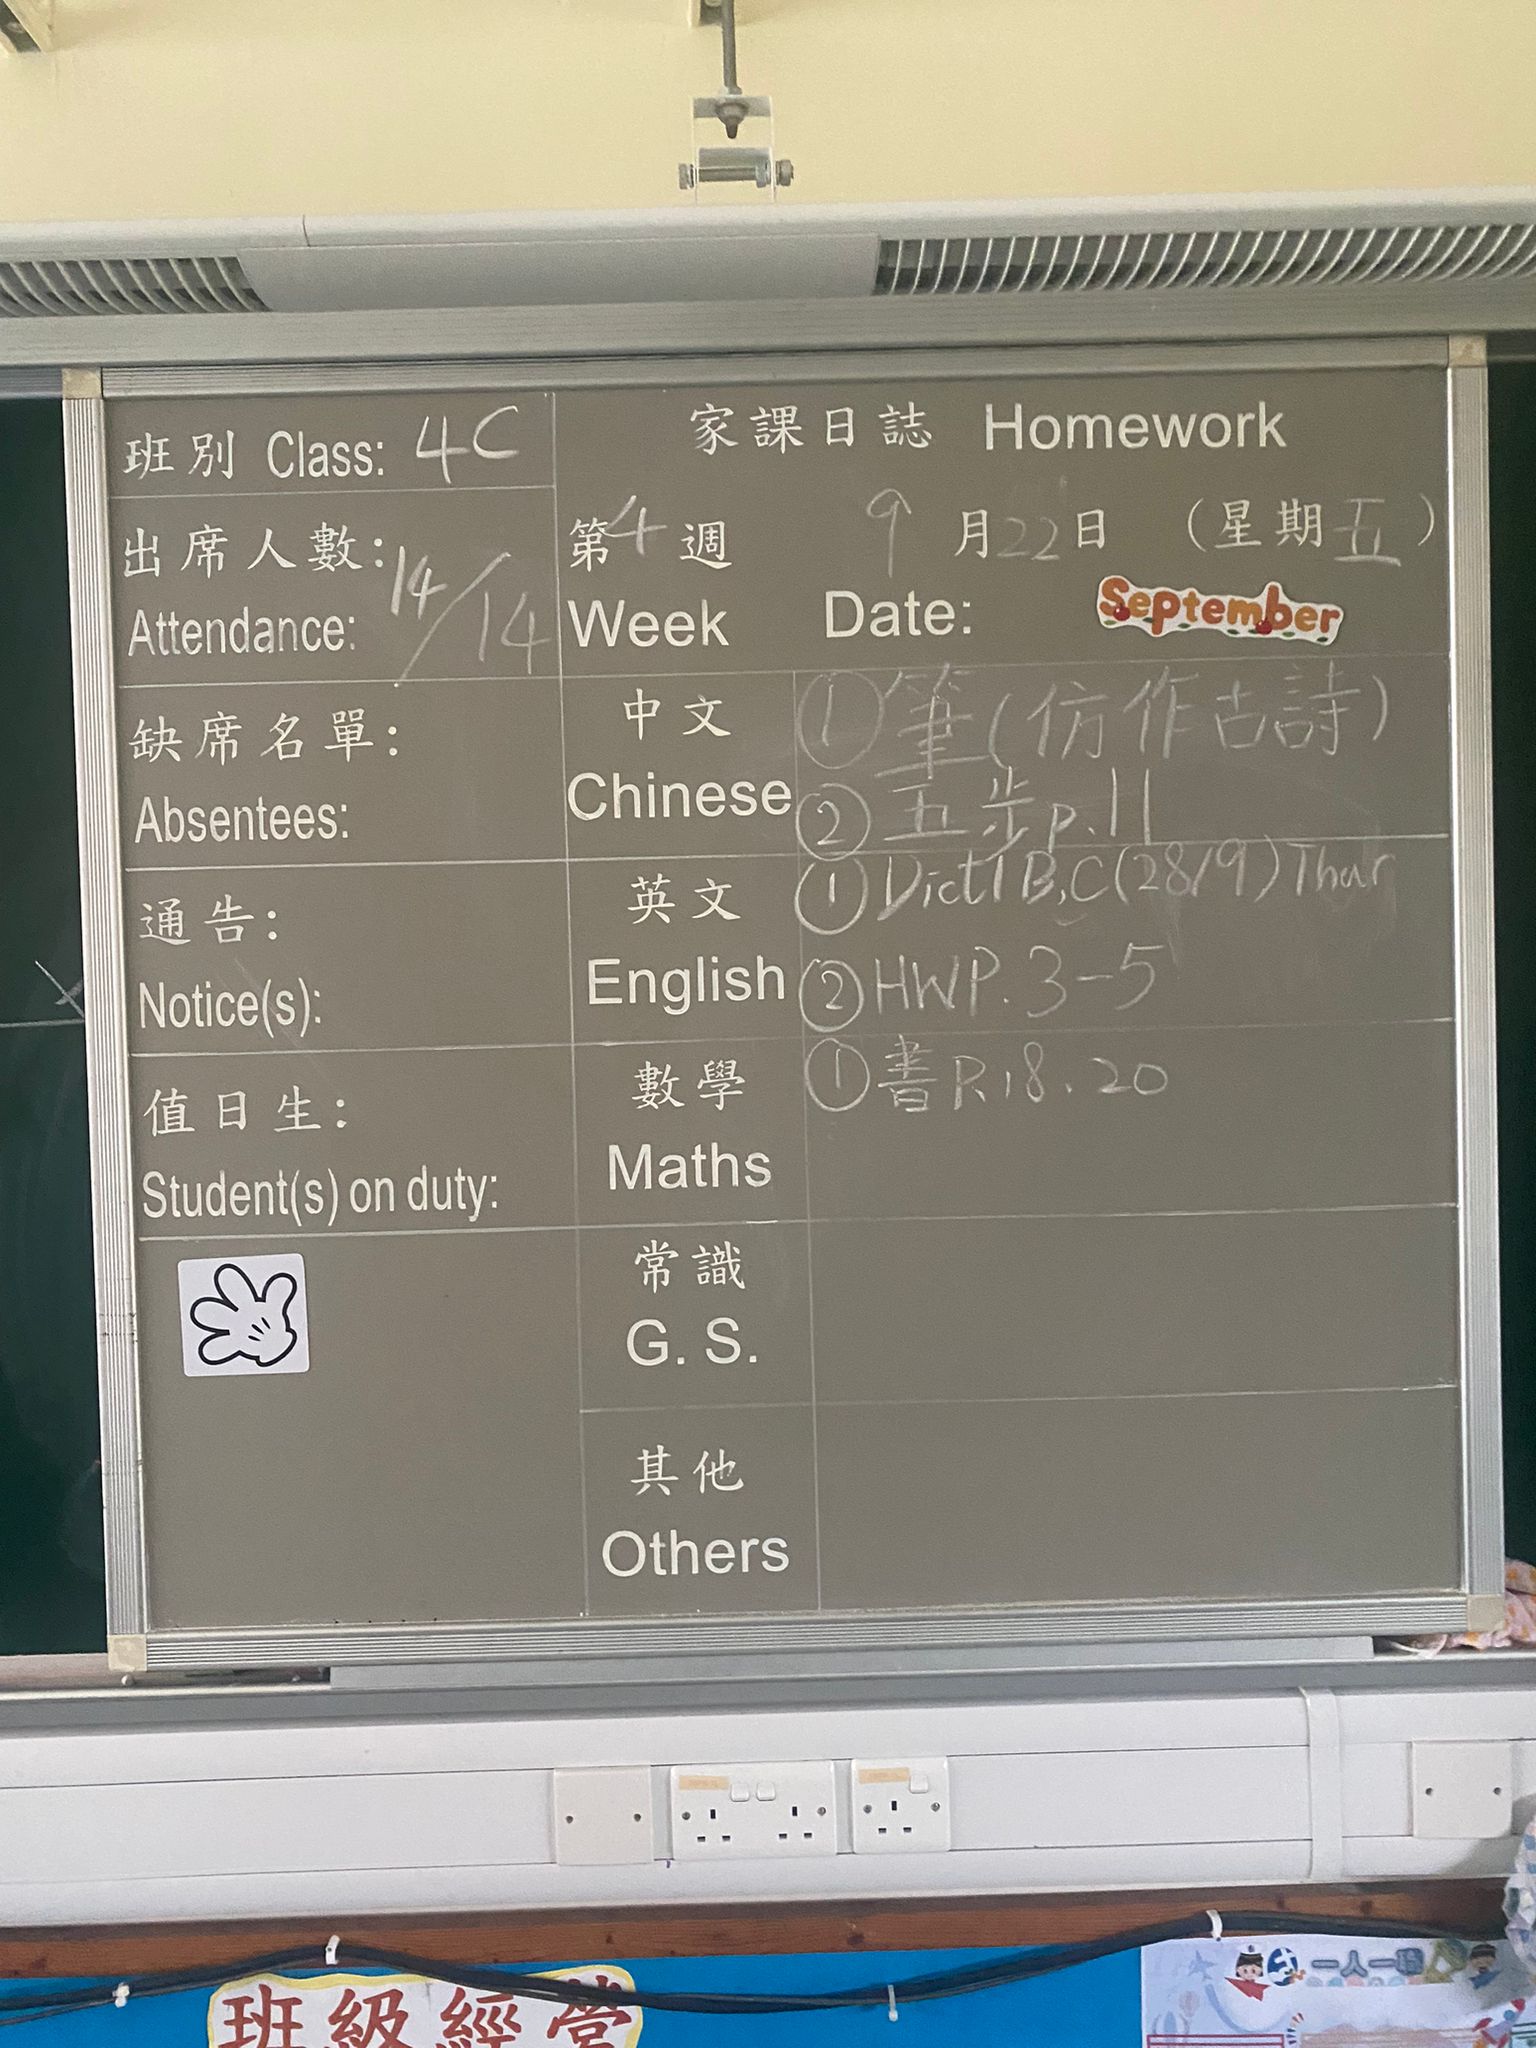 班別 Class: 4C
出席人數: 14/14
Attendance:
缺席名單:
Absentees:
通告:
Notice(s):
值日生:
Student(s) on duty:
家課日誌 Homework
第4週 9月22日 (星期五)
Week Date: September
中文
Chinese
①筆(仿作古詩)
②五步p.11
英文
English
①Dict1B,C(28/9)Thur
②HWP.3-5
數學
Maths
①書P.18、20
常識
G. S.
其他
Others
班級經營
一人一職